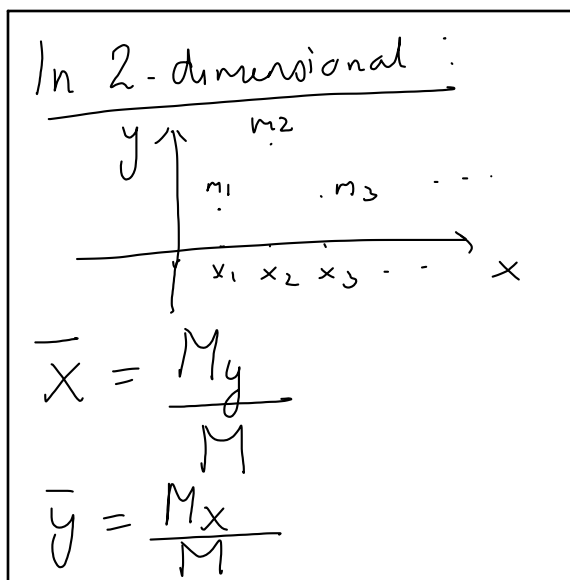 In 2-dimensional :
y
m2
m1 . m3 - - .
x1 x2 x3 . - -
x
x̅ = My / M
y̅ = Mx / M